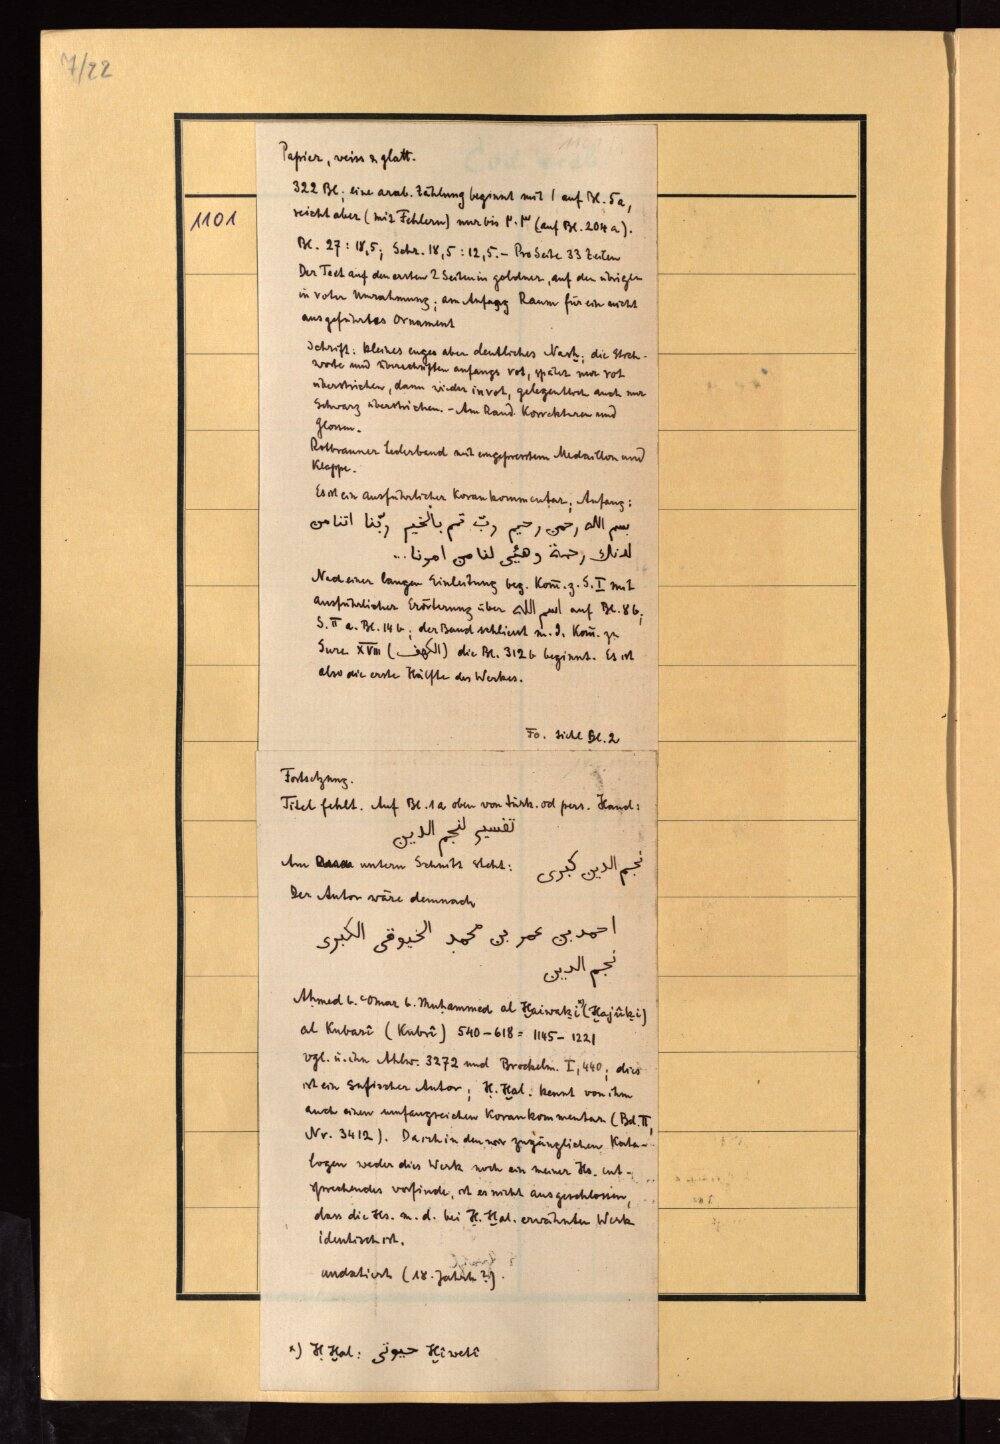 7/22
1101
Papier, weiss & glatt.
322 Bl; eine arab. Zählung beginnt mit 1 auf Bl. 5a,
reicht aber (mit Fehlern) nur bis ٢٠٣ (auf Bl. 204a).
Bl. 27 : 18,5; Schr. 18,5 : 12,5. – Pro Seite 33 Zeilen
Der Text auf den ersten 2 Seiten in goldner, auf den übrigen
in roter Umrahmung; am Anfang Raum für ein nicht
ausgeführtes Ornament
Schrift: kleines enges aber deutliches Nasḫ; die Stich-
worte und Überschriften anfangs rot, später nur rot
überstrichen, dann wieder in rot, gelegentlich auch nur
Schwarz überstrichen. – Am Rand Korrekturen und
Glossen.
Rotbrauner Lederband mit eingepresstem Medaillon und
Klappe.
Es ist ein ausführlicher Korankommentar; Anfang:
بسم الله رحمن رحيم ربّ تمم بالخير ربّنا اتنا من
لدنك رحمة وهيّئ لنا من امرنا...
Nach einer langen Einleitung beg. Kom̄. z. S. I mit
ausführlicher Erörterung über اسم الله auf Bl. 8b;
S. II a. Bl. 14b; der Band schliesst m. d. Kom̄. zu
Sure XVIII (الكهف) die Bl. 312b beginnt. Es ist
also die erste Hälfte des Werkes.
Fo. siehe Bl. 2
Fortsetzung.
Titel fehlt. Auf Bl. 1a oben von türk. od pers. Hand:
تفسير لنجم الدين
Am untern Schnitt steht: نجم الدين كبرى
Der Autor wäre demnach
احمد بن عمر بن محمد الخيوقى الكبرى
نجم الدين
Aḥmed b. ʿOmar b. Muḥammed al Ḫaiwaḳî *) (Ḫajûḳî)
al Kubarî (Kubrî) 540–618 = 1145–1221
vgl. ü. ihn Ahlw. 3272 und Brockelm. I, 440; dies
ist ein sufischer Autor; Ḥ. Ḫal. kennt von ihm
auch einen umfangreichen Korankommentar (Bd. II,
Nr. 3412). Da ich in den mir zugänglichen Kata-
logen weder dies Werk noch ein meiner Hs. ent-
sprechendes vorfinde, ist es nicht ausgeschlossen,
dass die Hs. m. d. bei Ḥ. Ḫal. erwähnten Werk
identisch ist.
undatiert (18. Jahrh?).
*) Ḥ Ḫal: حيوتى Ḫîwetî